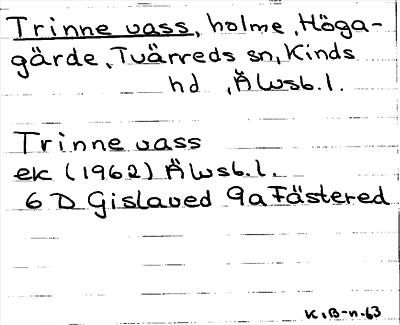 Trinne vass, holme, Höga-
gärde, Tvärreds sn, Kinds
hd, Älvsb.l.
Trinne vass
ek (1962) Älvsb.l.
6 D Gislaved 9a Fästered
K.B-n.63